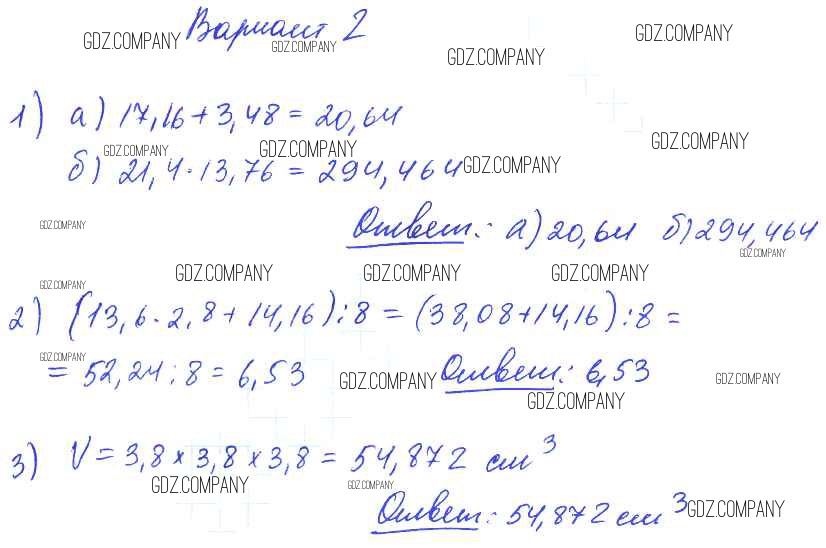 Вариант 2
GDZ.COMPANY GDZ.COMPANY GDZ.COMPANY GDZ.COMPANY
1) а) 17,16 + 3,48 = 20,64
GDZ.COMPANY GDZ.COMPANY GDZ.COMPANY
б) 21,4 · 13,76 = 294,464 GDZ.COMPANY
GDZ.COMPANY Ответ: а) 20,64 б) 294,464
GDZ.COMPANY
GDZ.COMPANY GDZ.COMPANY GDZ.COMPANY
GDZ.COMPANY
2) (13,6 · 2,8 + 14,16) : 8 = (38,08 + 14,16) : 8 =
GDZ.COMPANY
= 52,24 : 8 = 6,53 GDZ.COMPANY Ответ: 6,53 GDZ.COMPANY
GDZ.COMPANY
3) V = 3,8 × 3,8 × 3,8 = 54,872 см³
GDZ.COMPANY GDZ.COMPANY
Ответ: 54,872 см³ GDZ.COMPANY